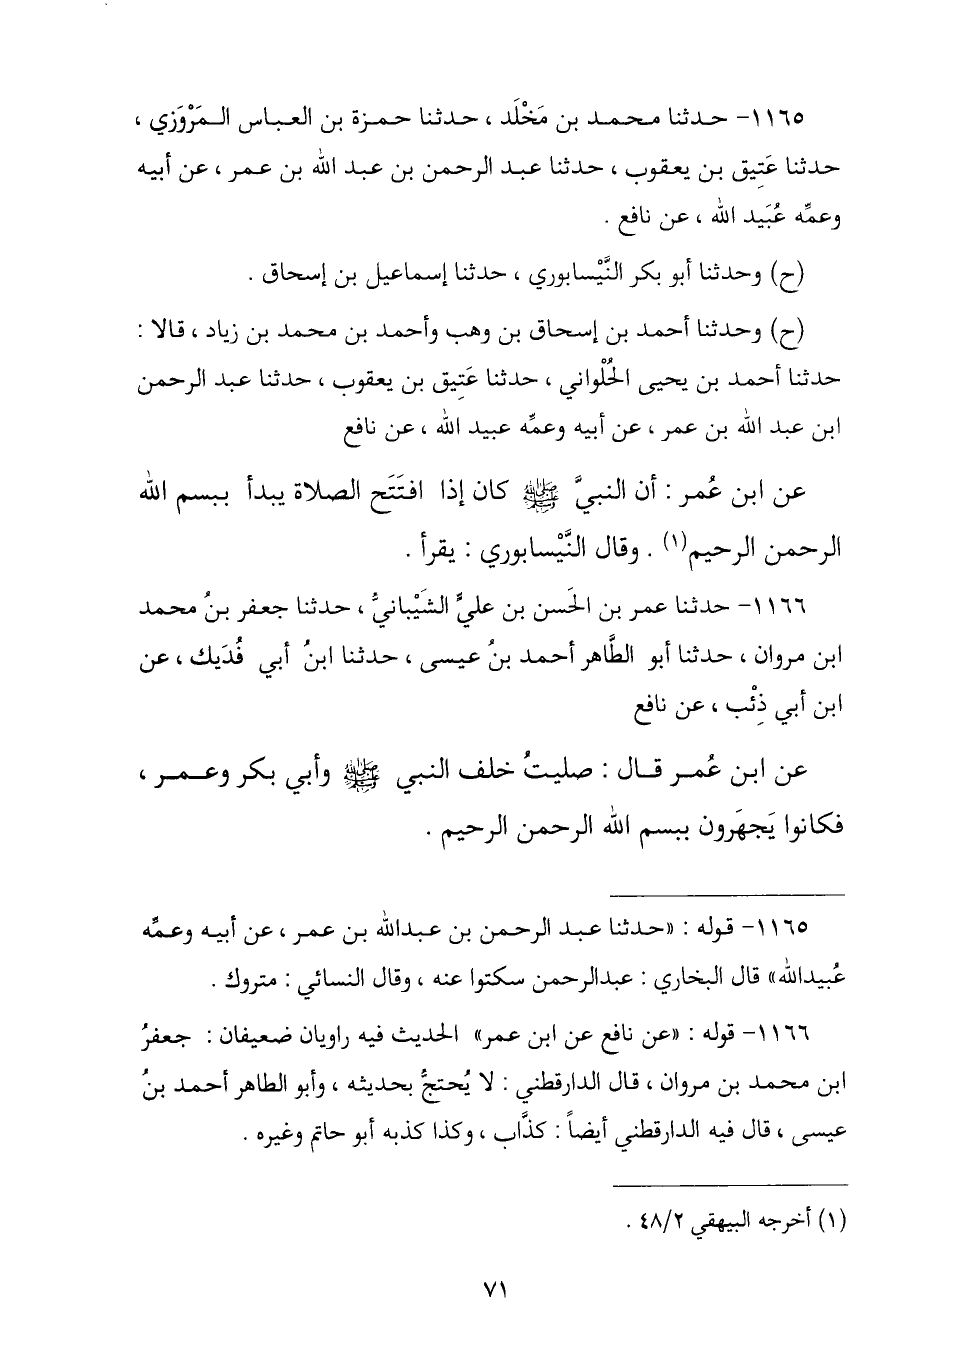 ١١٦٥- حدثنا محمد بن مَخْلَد ، حدثنا حمزة بن العباس المَرْوَزي ،
حدثنا عَتِيق بن يعقوب ، حدثنا عبد الرحمن بن عبد الله بن عمر ، عن أبيه
وعمِّه عُبَيد الله ، عن نافع .
(ح) وحدثنا أبو بكر النَّيْسابوري ، حدثنا إسماعيل بن إسحاق .
(ح) وحدثنا أحمد بن إسحاق بن وهب وأحمد بن محمد بن زياد ، قالا :
حدثنا أحمد بن يحيى الحُلْواني ، حدثنا عَتِيق بن يعقوب ، حدثنا عبد الرحمن
ابن عبد الله بن عمر ، عن أبيه وعمِّه عبيد الله ، عن نافع
عن ابن عُمر : أن النبيَّ ﷺ كان إذا افتَتَح الصلاة يبدأ ببسم الله
الرحمن الرحيم(١) . وقال النَّيْسابوري : يقرأ .
١١٦٦- حدثنا عمر بن الحَسن بن عليٍّ الشَيْبانيُّ ، حدثنا جعفر بنُ محمد
ابن مروان ، حدثنا أبو الطَّاهر أحمد بنُ عيسى ، حدثنا ابنُ أبي فُدَيك ، عن
ابن أبي ذِئْب ، عن نافع
عن ابن عُمر قال : صليتُ خلف النبي ﷺ وأبي بكر وعمر ،
فكانوا يَجهَرون ببسم الله الرحمن الرحيم .
١١٦٥- قوله : «حدثنا عبد الرحمن بن عبدالله بن عمر ، عن أبيه وعمِّه
عُبيدالله» قال البخاري : عبدالرحمن سكتوا عنه ، وقال النسائي : متروك .
١١٦٦- قوله : «عن نافع عن ابن عمر» الحديث فيه راويان ضعيفان : جعفرُ
ابن محمد بن مروان ، قال الدارقطني : لا يُحتجُّ بحديثه ، وأبو الطاهر أحمد بنُ
عيسى ، قال فيه الدارقطني أيضاً : كذَّاب ، وكذا كذبه أبو حاتم وغيره .
(١) أخرجه البيهقي ٤٨/٢ .
٧١